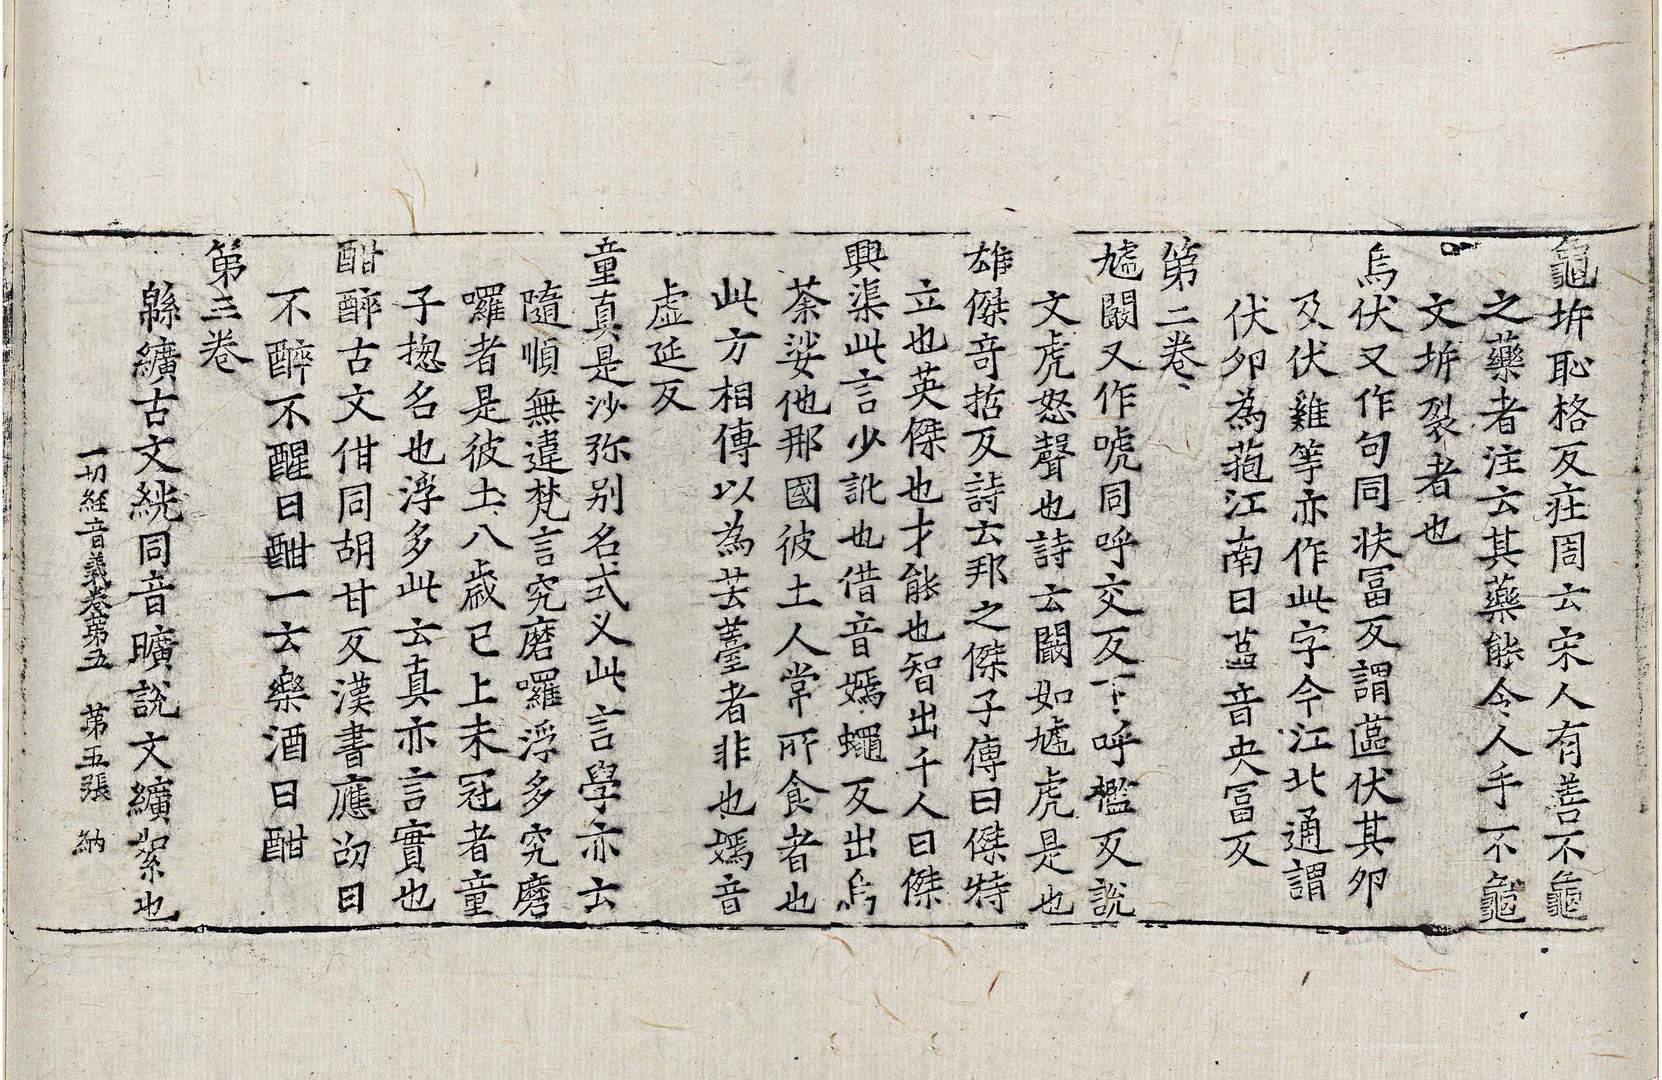 龜坼恥格反莊周云宋人有善不龜
之藥者注云其藥能令人手不龜
文坼裂者也
烏伏又作句同扶冨反謂蓲伏其卵
及伏雞等亦作此字今江北通謂
伏卵為菢江南曰蓲音央冨反
第二卷
㙈闞又作唬同呼交反下呼檻反說
文虎怒聲也詩云闞如㙈虎是也
雄傑奇哲反詩云邦之傑子傳曰傑特
立也英傑也才能也智出千人曰傑
興渠此言少訛也借音嫣蠅反出烏
荼娑他那國彼土人常所食者也
此方相傳以為芸薹者非也嫣音
虛延反
童真是沙弥別名式义此言學亦云
隨順無違梵言究磨囉浮多究磨
囉者是彼土八歲已上未冠者童
子揔名也浮多此云真亦言實也
酣醉古文佄同胡甘反漢書應劭曰
不醉不醒曰酣一云樂酒曰酣
第三卷
緜纊古文絖同音曠說文纊絮也
一切經音義卷第五　第五張　納